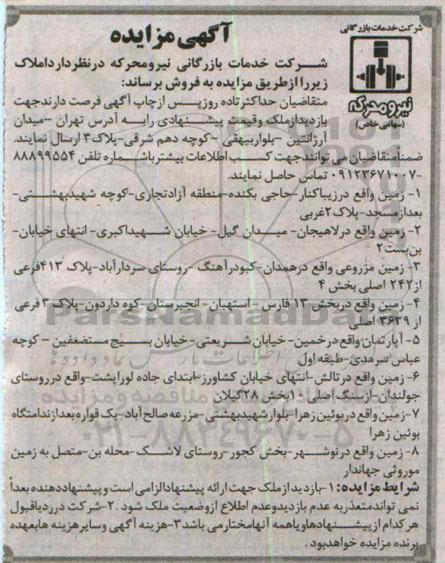 شرکت خدمات بازرگانی
نیرو محرکه
(سهامی خاص)
آگهی مزایده
شرکت خدمات بازرگانی نیرومحرکه درنظردارداملاک
زیررا ازطریق مزایده به فروش برساند:
متقاضیان حداکثرتاده روزپس ازچاپ آگهی فرصت دارندجهت
بازدیدازملک وقیمت پیشنهادی رابه آدرس تهران -میدان
آرژانتین -بلواربیهقی -کوچه دهم شرقی-پلاک۳ارسال نمایند.
ضمنامتقاضیان می توانندجهت کسب اطلاعات بیشترباشماره تلفن ۸۸۸۹۹۵۵۴
-۰۹۱۲۳۶۷۱۰۰۷ تماس حاصل نمایند.
۱- زمین واقع درزیباکنار-حاجی بکنده-منطقه آزادتجاری-کوچه شهیدبهشتی-
بعدازمسجد-پلاک۲غربی
۲- زمین واقع درلاهیجان- میدان گیل- خیابان شهیداکبری- انتهای خیابان-
بن بست۲
۳- زمین مزروعی واقع درهمدان-کبودرآهنگ -روستای سردارآباد-پلاک ۴۱۳فرعی
از۲۴۲ اصلی بخش ۴
۴- زمین واقع دربخش ۱۳ فارس - استهبان-انجیرستان-کوه داردون-پلاک ۳ فرعی
از ۳۶۳۹ اصلی
۵- آپارتمان واقع درخمین-خیابان شریعتی-خیابان بسیج مستضعفین - کوچه
عباس سرمدی-طبقه اول
۶- زمین واقع درتالش-انتهای خیابان کشاورز-ابتدای جاده لوراپشت-واقع درروستای
جولندان-ازسنگ اصلی ۱۰بخش ۲۸گیلان
۷-زمین واقع دربوئین زهرا-بلوارشهیدبهشتی-مزرعه صالح آباد-یک قواره بعدازندامتگاه
بوئین زهرا
۸- زمین واقع درنوشهر-بخش کجور-روستای لاشک-محله بن-متصل به زمین
موروثی جهاندار
شرایط مزایده: ۱-بازدیدازملک جهت ارائه پیشنهادالزامی است وپیشنهاددهنده بعداً
نمی تواندمتعذربه عدم بازدیدوعدم اطلاع ازوضعیت ملک شود .۲-شرکت درردیاقبول
هرکدام ازپیشنهادهاویاهمه آنهامختارمی باشد۳-هزینه آگهی وسایرهزینه هابعهده
برنده مزایده خواهدبود.
ParsNamadData
۰۲۱-۸۸۳۴۹۶۷۰-۵